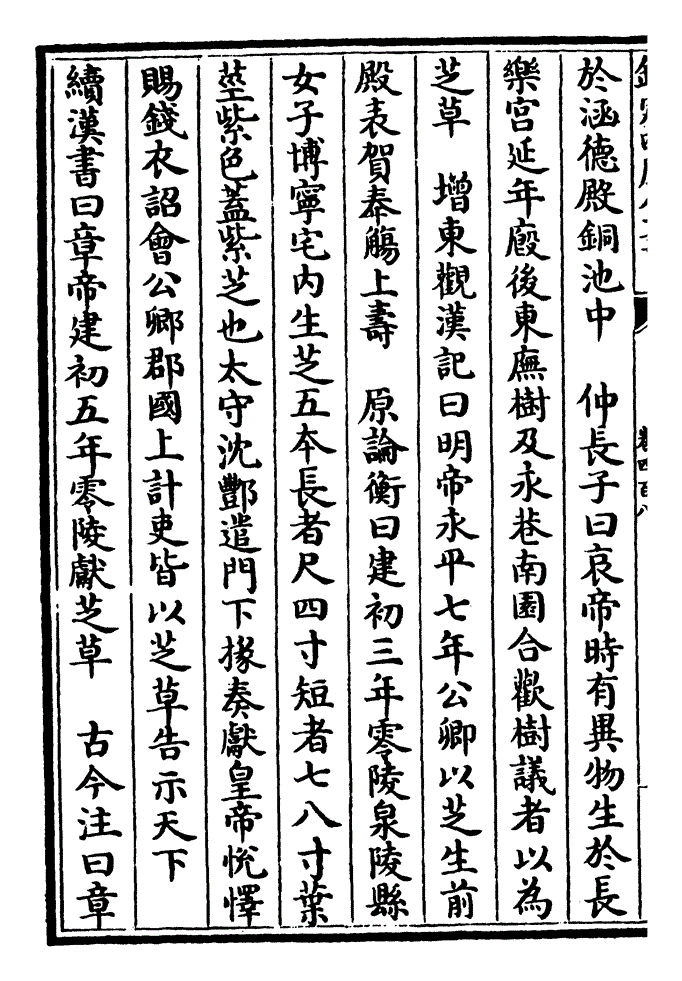 於涵德殿銅池中　仲長子曰哀帝時有異物生於長
樂宫延年殿後東廡樹及永巷南園合歡樹議者以為
芝草　增東觀漢記曰明帝永平七年公卿以芝生前
殿表賀奉觴上壽　原論衡曰建初三年零陵泉陵縣
女子博寧宅内生芝五本長者尺四寸短者七八寸葉
莖紫色蓋紫芝也太守沈酆遣門下掾奏獻皇帝悅懌
賜錢衣詔會公卿郡國上計吏皆以芝草告示天下
續漢書曰章帝建初五年零陵獻芝草　古今注曰章